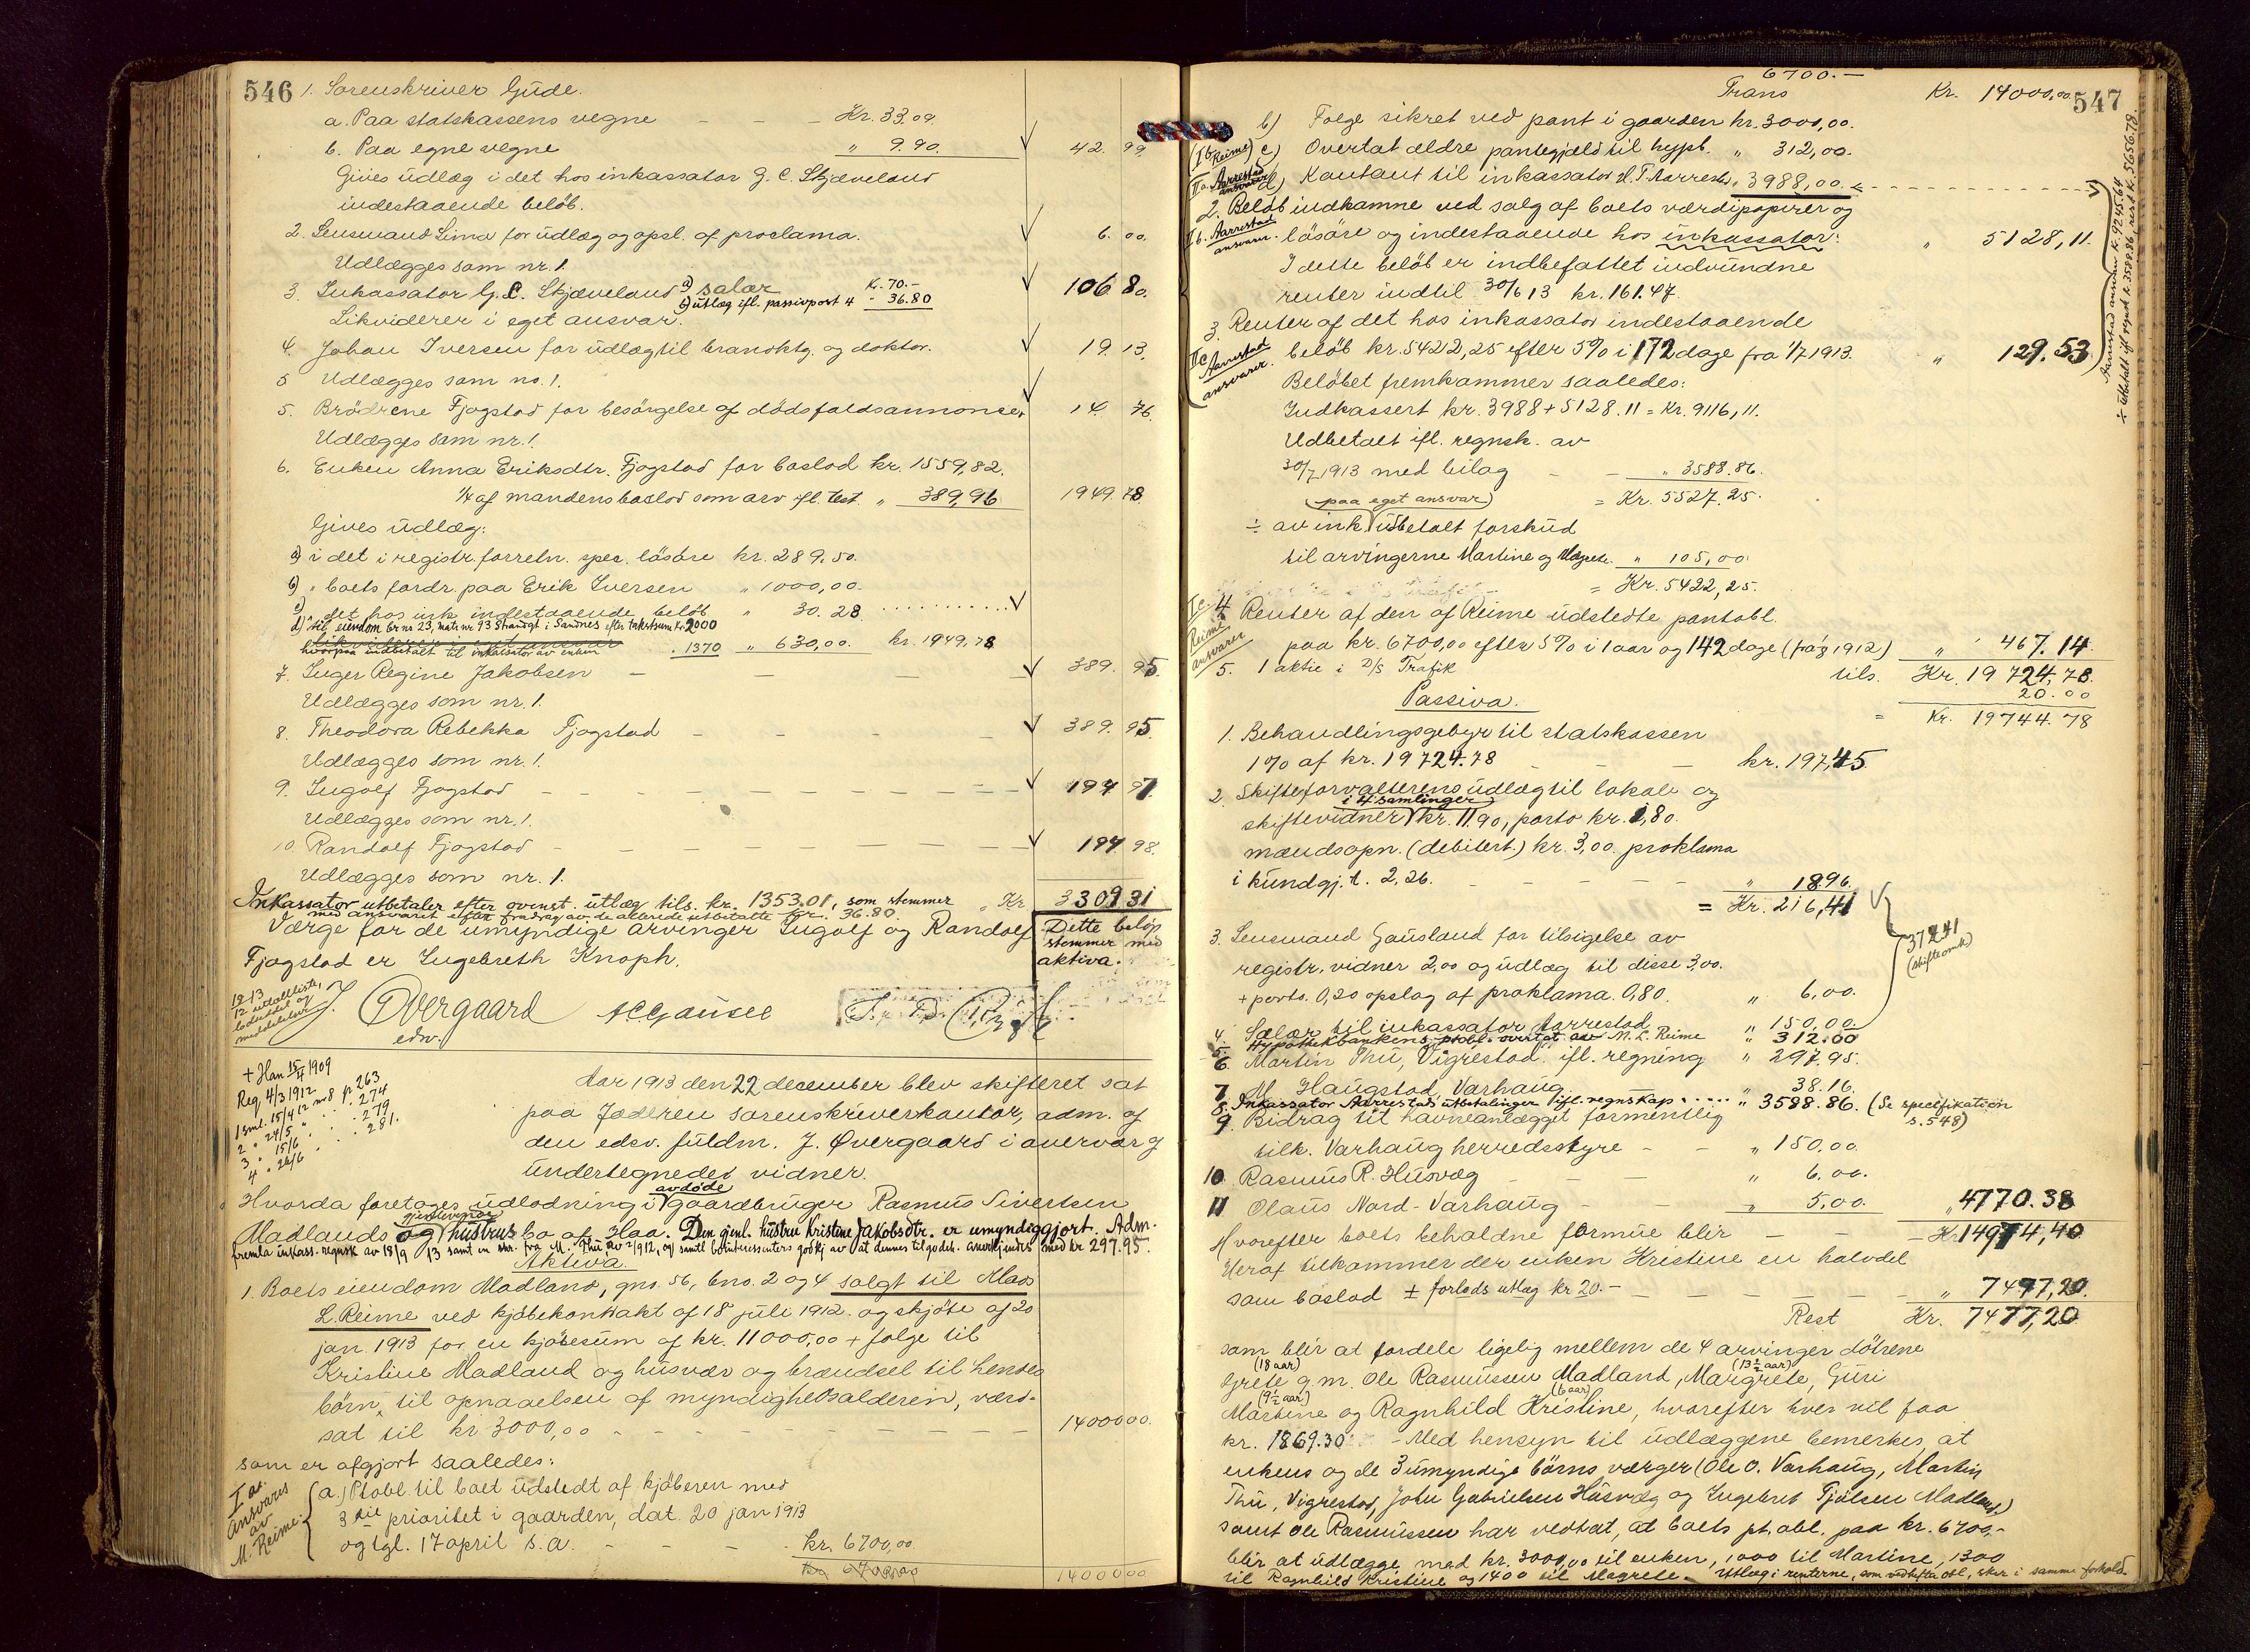 546
1. Sorenskriver Gude.
a. Paa statskassens vegne - - - Kr. 33.09.
b. Paa egne vegne " 9.90. 42. 99
Gives udlæg i det hos inkassator G. C. Skjæveland
indestaaende beløb.
2. Lensmand Lima for udlæg og opsl. af proclama. 6. 00.
Udlægges som nr. 1.
3. Inkassator G. C. Skjæveland a) salær Kr. 70.- 106 80.
b) utlæg ifl. passivpost 4 - 36.80
Likviderer i eget ansvar.
4. Johan Iversen for udlæg til brandktg. og doktor. 19. 13.
5 Udlægges som no. 1.
5. Brödrene Fjogstad for besörgelse af dödsfaldsannoncer 14. 76.
Udlægges som nr. 1.
6. Enken Anna Eriksdtr. Fjogstad for boslod kr. 1559,82.
1/4 af mandens boslod som arv ifl. test. " 389,96 1949.78
Gives udlæg:
a) i det i registr.forretn. spec. lösöre kr. 289.50.
b) " boets fordr. paa Erik Iversen " 1000,00.
c) " det hos ink. indestaaende beløb " 30.28
d) til eiendom brnr 23, matr nr 93 Strandgt i Sandnes efter takstsum kr 2000
hvorpaa indbetalt til inkassator av enken " 1370 " 630,00. kr. 1949,78
7. Inger Regine Jakobsen - - - - 389. 95.
Udlægges som nr. 1.
8. Theodora Rebekka Fjogstad - - - - 389. 95.
Udlægges som nr. 1.
9. Ingolf Fjogstad - - - - 194 97.
Udlægges som nr. 1.
10. Randolf Fjogstad - - - - 194 98.
Udlægges som nr. 1.
Inkassator utbetaler efter ovenst. utlæg tils. kr. 1353.01, som stemmer Kr 3309 31
med ansvaret efter fradrag av de allerede utbetalte kr. 36.80.
Værge for de umyndige arvinger Ingolf og Randolf
Fjogstad er Ingebreth Knoph.
Dette beløp
stemmer med
aktiva.
J. Øvergaard
edsv.
+ Han 15/4 1909
Reg 4/3 1912
1 sml. 15/4 12 nr 8 p. 263
2 " 24/5 " . . 274
3 " 15/6 . . 279
4 " 26/6 . . 281.
Aar 1913 den 22 december blev skifteret sat
paa Jæderen sorenskriverkontor, adm. af
den edsv. fuldm. J. Øvergaard i overvær af
undertegnede vidner.
Hvorda foretages udlodning i avdøde gaardbruger Rasmus Sivertsen
Madlands og gjenlevende hustrus bo af Haa. Den gjenl. hustru Kristine Jakobsdtr. er umyndiggjort. Adm.
fremla inkass. regnsk av 18/9 13 samt en skr. fra M. Thu, av 2/9 12, og samtl bointeressenters godkj av at dennes tilgodeh. anerkjendes med kr 297.95.
Aktiva.
1. Boets eiendom Madland, gno. 56, bno. 2 og 4 solgt til Mads
L. Reime ved kjöbekontrakt af 18 juli 1912 og skjöte af 20
jan. 1913 for en kjöbesum af kr. 11000,00 + folge til
Kristine Madland og husvær og brændsel til hendes
börn, til opnaaelsen af myndighedsalderen, værd-
sat til kr 3000,00 - - - - 14000 00.
som er afgjort saaledes:
I a.
ansvares
av
M. Reime.
a.) Ptobl. til boet udstedt af kjöberen med
3die prioritet i gaarden, dat. 20 jan 1913
og tgl. 17 april s.a. - - - kr. 6700,00.
14000 00
547
6700.-
Trans Kr. 14000,00.
b) Folge sikret ved pant i gaarden kr. 3000,00.
(I b. Reime) c) Overtat ældre pantegjæld til hypb. " 312,00.
II a. Aarrestad ansvarer d) Kontant til inkassator M. T. Aarrestad " 3988,00.
2. Belöb indkomne ved salg af boets værdipapirer og
II b. Aarrestad ansvarer. lösöre og indestaaende hos inkassator: " 5128,11.
I dette belöb er indbefattet indvundne
renter indtil 30/6 13 kr. 161.47.
3. Renter af det hos inkassator indestaaende
II c. Aarrestad ansvarer. belöb kr. 5422,25 efter 5% i 172 dage fra 1/7 1913. " 129.53
Belöbet fremkommer saaledes:
Indkassert kr. 3988 + 5128.11 = Kr. 9116,11.
Udbetalt ifl. regnsk. av
30/7 1913 med bilag - - " 3588.86.
= Kr. 5527.25.
÷ av ink (paa eget ansvar) udbetalt forskud
til arvingerne Martine og Magrete. " 105,00.
= Kr. 5422,25.
I c. Reime ansvarer
4 Renter af den af Reime udstedte pantobl.
paa kr. 6700,00 efter 5% i 1 aar og 142 dage (fra 1/8 1912) " 467.14.
5. 1 aktie i D/S Trafik tils. Kr. 19724,78.
20.00
= Kr. 19744.78
Aarrestad ansvarer kr. 9245.64
÷ utbetalt ifl regnsk kr. 3588.86, rest kr. 5656.78.
Passiva.
1. Behandlingsgebyr til statskassen
1% af kr. 19724.78 - - - kr. 197,45
2. Skifteforvalterens udlæg til lokale og
skiftevidner i 4 samlinger kr. 11.90, porto kr. 1,80.
mændsopn. (debitert.) kr. 3,00. proklama
i kundgj.t. 2,26. - - - " 18.96.
= Kr. 216,41
3. Lensmand Gausland for tilsigelse av
registr. vidner 2,00 og udlæg til disse 3,00.
+ porto. 0,20 opslag af proklama. 0,80. " 6,00.
372.41
(skifteomk.)
4. Salær til inkassator Aarrestad " 150,00
5. Hypothekbankens ptobl. overtat av M. L. Reime " 312.00
6. Martin Thu, Vigrestad ifl. regning " 297.95.
7 M. Haugstad, Varhaug. " 38.16.
8. Inkassator Aarrestads utbetalinger ifl. regnskap . . . . . " 3588.86. (Se specifikation
s. 548)
9. Bidrag til havneanlægget formentlig
tilk. Varhaug herredsstyre - - " 150,00.
10 Rasmus R. Husvæg - - - " 6,00.
11 Olaus Nord-Varhaug - - " 5,00. " 4770.38
Hvorefter boets beholdne formue blir - - - Kr 14974,40
Heraf tilkommer der enken Kristine en halvdel
som boslod ± forlods utlæg kr 20.- - - - - " 7497,20.
Rest Kr. 7477,20
som blir at fordele ligelig mellem de 4 arvinger dötrene
Grete (18 aar) g.m. Ole Rasmussen Madland, Margrete (13½ aar), Guri
Martine (9½ aar) og Ragnhild Kristine (6 aar), hvorefter hver vil faa
kr. 1869.30 - Med hensyn til udlæggene bemerkes, at
enkens og de 3 umyndige börns værger (Ole O. Varhaug, Martin
Thu, Vigrestad, John Gabrielsen Husvæg og Ingebret Tjölsen Madland)
samt Ole Rasmussen har vedtat, at boets pt.obl. paa kr. 6700,-
blir at udlægge med kr. 3000,00 til enken, 1000 til Martine, 1300
til Ragnhild Kristine og 1400 til Magrete. Utlæg i renterne, som vedhefte obl, sker i samme forhold.